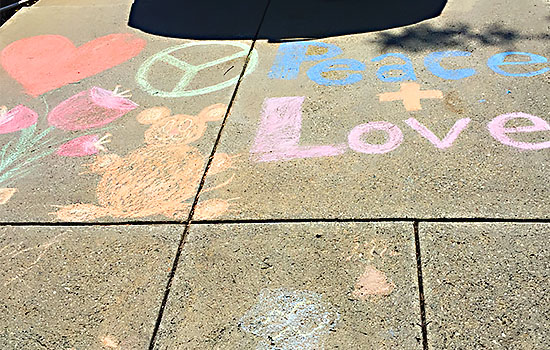 Peace
+
Love